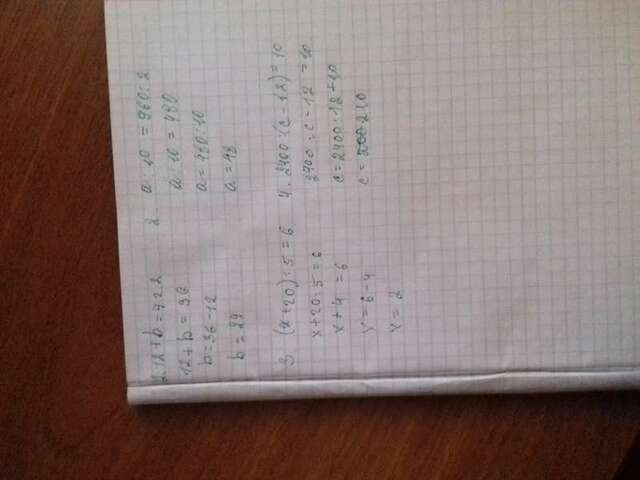 1. 12 + b = 72:2
12 + b = 36
b = 36 - 12
b = 24
2. a · 10 = 960:2
a · 10 = 480
a = 480:10
a = 48
3. (x+20):5 = 6
x+20:5 = 6
x + 4 = 6
x = 6 - 4
x = 2
4. 2400:(c-12) = 10
2400:c-12 = 10
c = 2400:12+10
c = 210